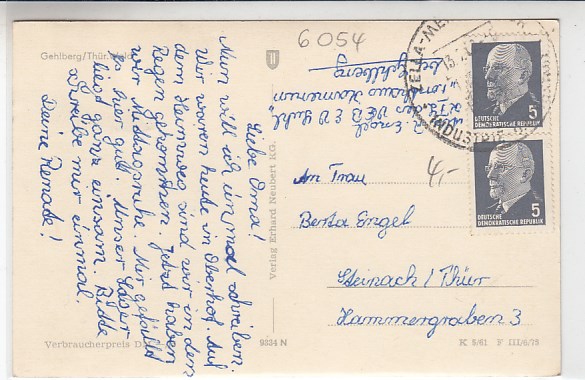 Gehlberg/Thür. Wald
6054
Liebe Oma!
Nun will ich dir mal schreiben.
Wir waren heute in Oberhof. Auf
dem Heimweg sind wir in den
Regen gekommen. Jetzt haben
wir Mittagsruhe. Mir gefällt
es hier gut. Unser Haus
liegt ganz einsam. Bitte
schreibe mir einmal.
Deine Renate!
Verlag Erhard Neubert KG.
R. Engel
Gehlberg
4,-
An Frau
Berta Engel
Steinach/Thür
Hammergraben 3
ZELLA-ME
INDUSTRIE
5
DEUTSCHE
DEMOKRATISCHE REPUBLIK
5
DEUTSCHE
DEMOKRATISCHE REPUBLIK
Verbraucherpreis
9334 N
K 9/61 F III/6/75